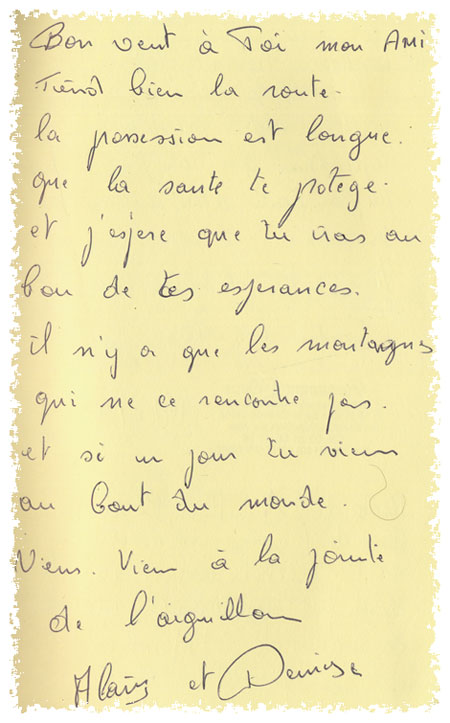 Bon vent à Toi mon AMI
Tiend bien la route.
la possession est longue.
que la sante te protege.
et j'espere que tu iras au
bou de tes esperances.
il n'y a que les montagnes
qui ne ce rencontre pas.
et si un jour tu viens
au bout du monde.
Viens. Viens à la pointe
de l'aiguillon
Alain et Denise